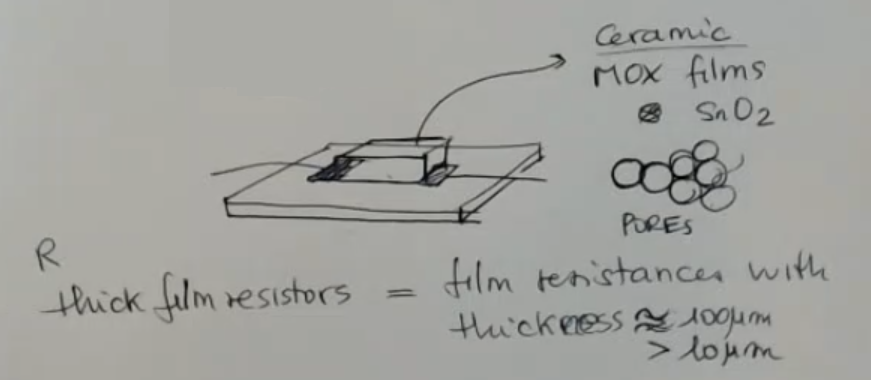 Ceramic
MOX films
SnO2
PORES
R
thick film resistors = film resistances with
thickness ≈ 100µm
> 10µm